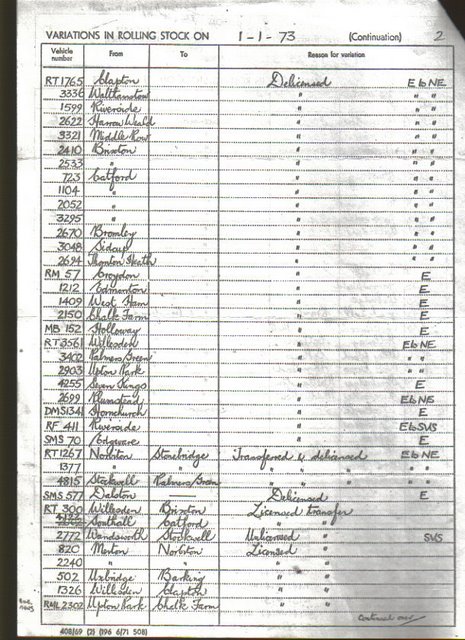 VARIATIONS IN ROLLING STOCK ON 1-1-73 (Continuation) 2
Vehicle number From To Reason for variation
RT1765 Clapton Delicensed E b NE
3336 Walthamstow " " "
1599 Riverside " " "
2622 Harrow Weald " " "
3321 Middle Row " " "
2410 Brixton " " "
2533 " " " "
723 Catford " " "
1104 " " " "
2052 " " " "
3295 " " " "
2670 Bromley " " "
3048 Sidcup " " "
2694 Thornton Heath " " "
RM 57 Croydon " E
1212 Edmonton " E
1409 West Ham " E
2150 Chalk Farm " E
MB 152 Holloway " E
RT3561 Willesden " E b NE
3402 Palmers Green " " "
2903 Upton Park " " "
4255 Seven Kings " E
2699 Plumstead " E b NE
DMS1341 Hornchurch " E
RF 411 Riverside " E b SUS
SMS 70 Edgware " E
RT1267 Norbiton Stonebridge Transferred & delicensed E b NE
1377 " " " " " " "
4815 Stockwell Palmers Green " " " " "
SMS 577 Dalston — Delicensed E
RT 300 Willesden Brixton Licensed transfer
Southall Catford " "
2772 Wandsworth Stockwell Unlicensed " SUS
820 Merton Norbiton Licensed "
2240 " " " "
502 Uxbridge Barking " "
1326 Willesden Clapton " "
RML 2302 Upton Park Chalk Farm " "
Continued over
408/69 (2) (196 6/71 508)